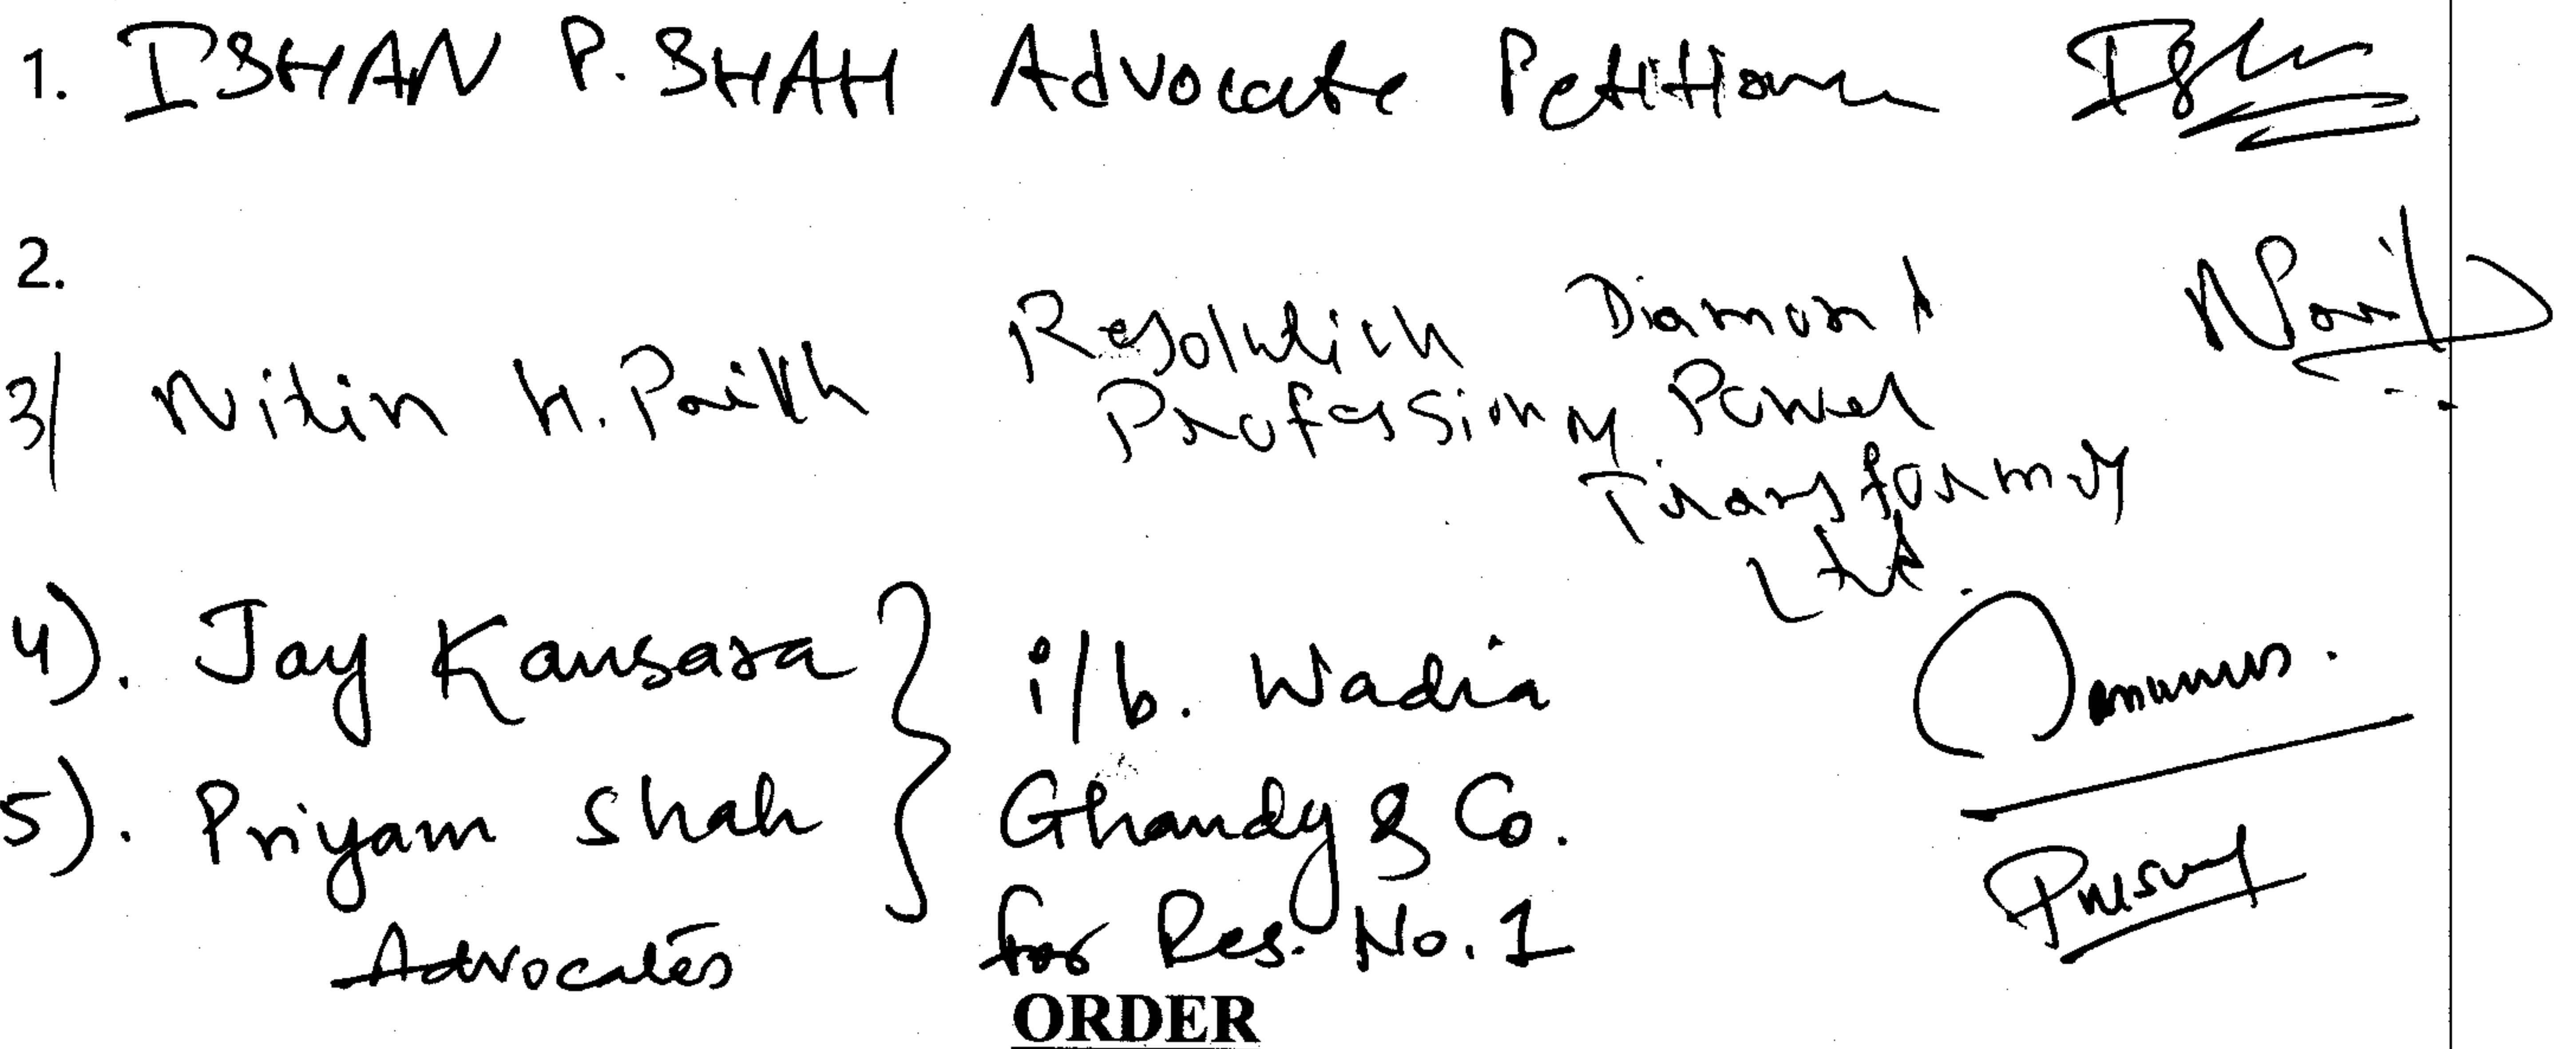 1. ISHAN P. SHAH Advocate Petitioner
2.
3/ Nitin H. Parikh Resolution Professional Diamond Power Transformers Ltd.
4). Jay Kansara
5). Priyam Shah
Advocates
i/b. Wadia
Ghandy & Co.
for Res. No. 1
ORDER